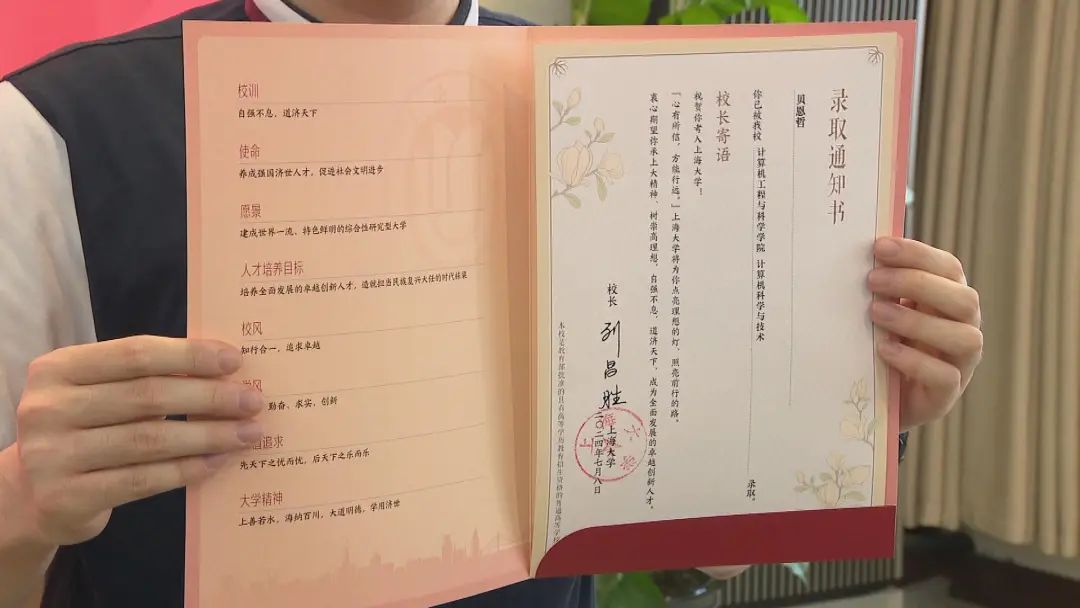 校训
自强不息，道济天下
使命
养成强国济世人才，促进社会文明进步
愿景
建成世界一流、特色鲜明的综合性研究型大学
人才培养目标
培养全面发展的卓越创新人才，造就担当民族复兴大任的时代栋梁
校风
知行合一，追求卓越
风
勤奋、求实、创新
追求
先天下之忧而忧，后天下之乐而乐
大学精神
上善若水，海纳百川，大道明德，学用济世
录取通知书
贝恩哲
你已被我校 计算机工程与科学学院 计算机科学与技术 录取。
校长寄语
祝贺你考入上海大学！
“心有所信，方能行远。”上海大学将为你点亮理想的灯，照亮前行的路。
衷心期望你承上大精神，树崇高理想，自强不息，道济天下，成为全面发展的卓越创新人才。
校长 刘昌胜
上海大学
二〇二四年七月八日
本校是教育部批准的具有高等学历教育招生资格的普通高等学校